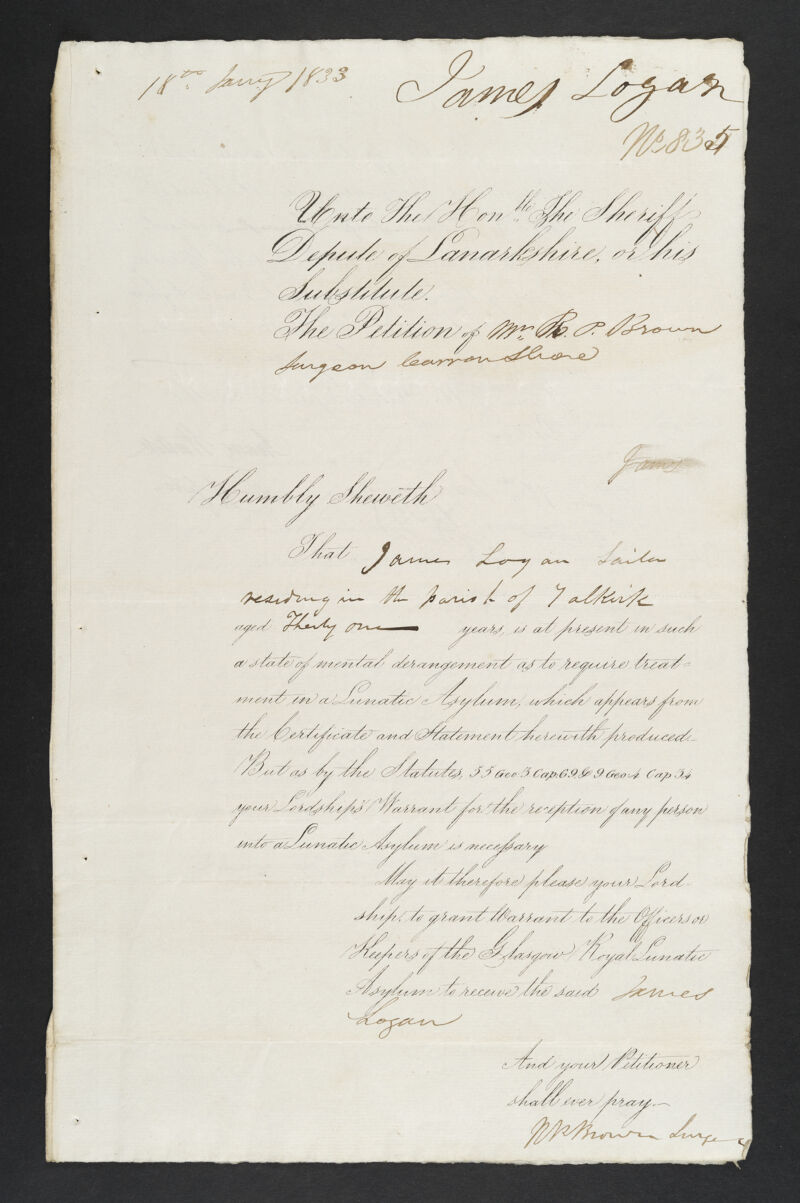 18th Jany 1833
James Logan
No 835
Unto The Honble The Sheriff
Depute of Lanarkshire, or his
Substitute.
The Petition of Mr R. P. Brown
Surgeon Carron Shore
Jame
Humbly Sheweth
That James Logan Sailor
residing in the parish of Falkirk
aged Thirty one years, is at present in such
a state of mental derangement as to require treat=
ment in a Lunatic Asylum, which appears from
the Certificate and Statement herewith produced.
But as by the Statutes, 55 Geo. 3 Cap. 69 & 9 Geo. 4 Cap 34
your Lordship's Warrant for the reception of any person
into a Lunatic Asylum is necessary
May it therefore please your Lord-
ship, to grant Warrant to the Officers or
Keepers of the Glasgow Royal Lunatic
Asylum to receive the said James
Logan
And your Petitioner
shall ever pray
R P Brown Surgeon